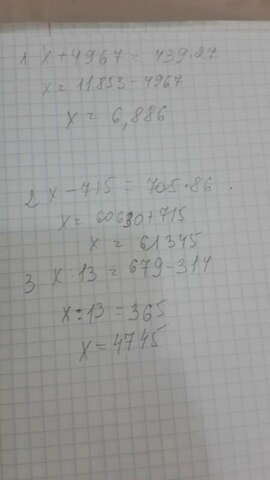 1 x + 4967 = 439·27
x = 11853 - 4967
x = 6,886
2 x - 715 = 705·86
x = 60630 + 715
x = 61345
3 x : 13 = 679 - 314
x : 13 = 365
x = 4745